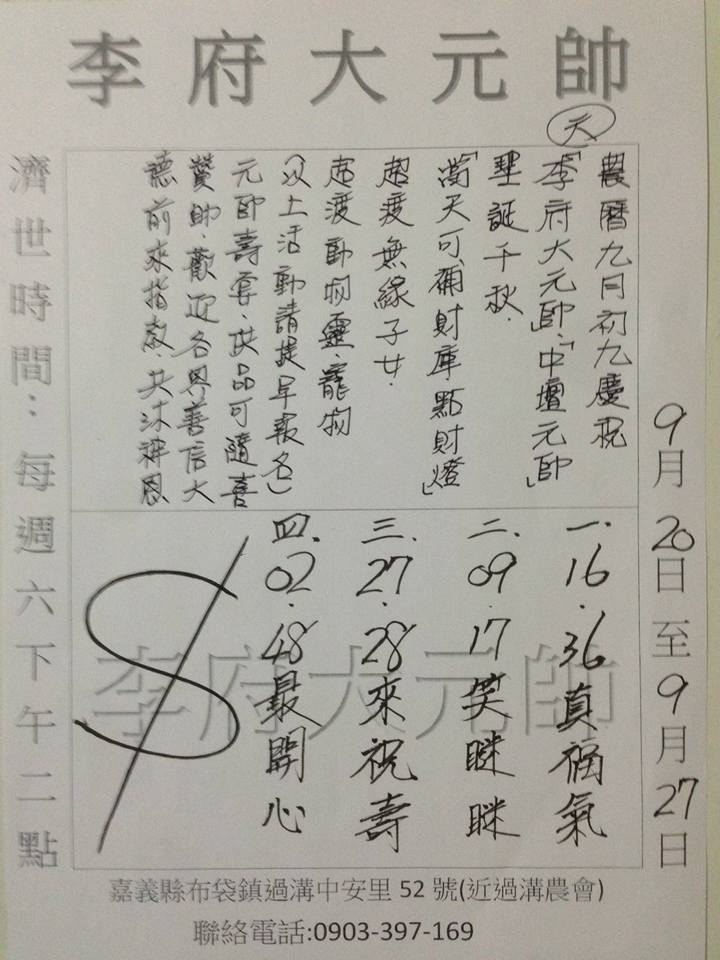 李府大元帥
天
農曆九月初九慶祝
「李府大元帥」、「中壇元帥」
聖誕千秋.
「當天可補財庫點財燈」
超渡無緣子女.
超渡動物靈.寵物
(以上活動請提早報名)
元帥壽宴.供品可隨喜
贊助.歡迎各界善信大
德前來指教.共沐神恩
9月20日至9月27日
一.16.36真福氣
二.09.17笑瞇瞇
三.27.28來祝壽
四.02.48最開心
李府大元帥
濟世時間：每週六下午二點
嘉義縣布袋鎮過溝中安里52號(近過溝農會)
聯絡電話:0903-397-169